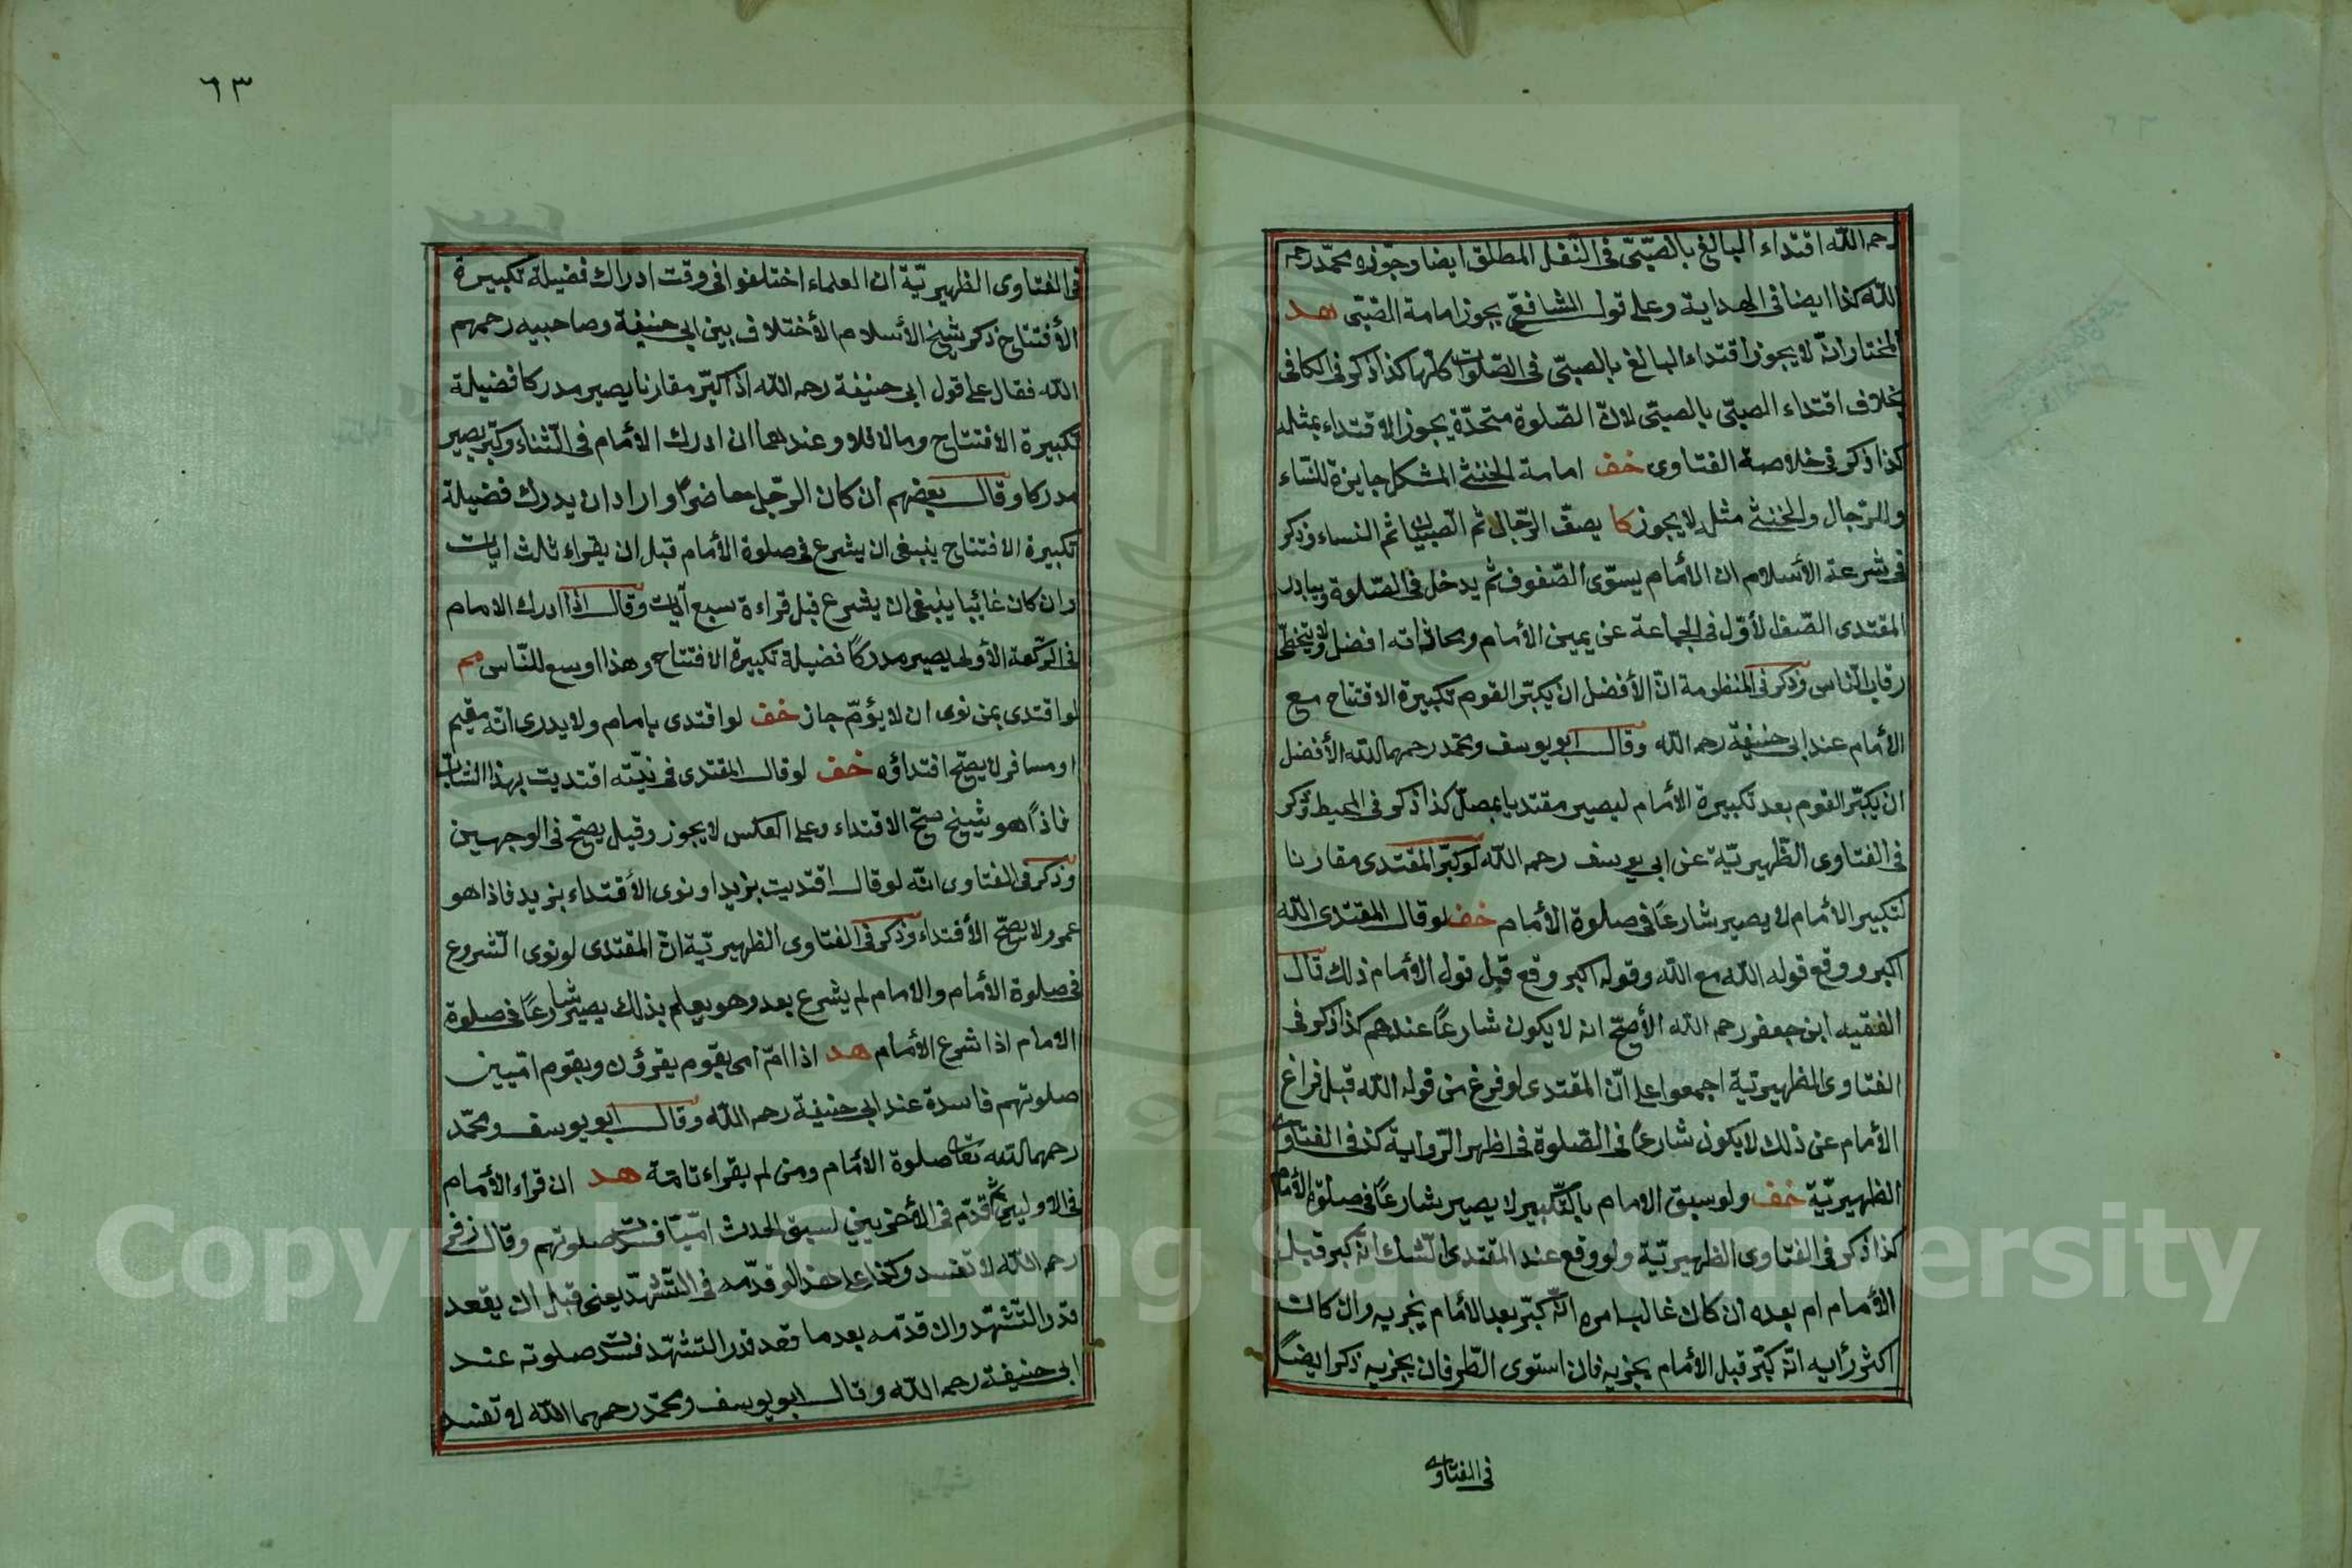 رحمه الله اقتداء البالغ بالصبّى فى النفل المطلق ايضا وجوّزه محمّد رحمه
الله كذا ايضا فى الهداية وعلى قول الشافعىّ يجوز امامة الصّبى هد
المختار انّه لا يجوز اقتداء البالغ بالصبّى فى الصّلوات كلّها كذا ذكر فى الكافى
بخلاف اقتداء الصبّى بالصبّى لانّ الصّلوة متحدّة يجوز الاقتداء بمثله
كذا ذكر فى خلاصة الفتاوى خف امامة الخنثى المشكل جايزة للنّساء
وللرّجال والخنثى مثله لا يجوز كا يصفّ الرّجال ثم الصّبيان ثم النساء وذكر
فى شرعة الأسلام ان الأمام يسوّى الصّفوف ثم يدخل فى الصّلوة ويبادر
المقتدى الصّف الأوّل فى الجماعة عن يمين الأمام ومحاذاته افضل ولا يتخطّى
رقاب النّاس وذكر فى المنظومة انّ الأفضل ان يكبّر القوم تكبيرة الافتتاح مع
الأمام عند ابى حنيفة رحمه الله وقال ابو يوسف ومحمّد رحمهما الله الأفضل
ان يكبّر القوم بعد تكبيرة الأمام ليصير مقتديا بمصلّ كذا ذكر فى المحيط وذكر
فى الفتاوى الظّهيريّة عن ابى يوسف رحمه الله لو كبّر المقتدى مقارنا
لتكبير الأمام لا يصير شارعًا فى صلوة الأمام خف لو قال المقتدى الله
اكبر ووقع قوله الله مع الله وقوله اكبر وقع قبل قول الأمام ذلك قال
الفقيه ابن جعفر رحمه الله الأصحّ انه لا يكون شارعًا عندهم كذا ذكر فى
الفتاوى الظهيريّة اجمعوا على انّ المقتدى لو فرغ من قوله الله قبل فراغ
الأمام عن ذلك لا يكون شارعًا فى الصّلوة فى اظهر الرّواية كذا فى الفتاوى
الظهيريّة خف ولو سبق الامام بالتّكبير لا يصير شارعًا فى صلوة الأمام
كذا ذكر فى الفتاوى الظهيريّة ولو وقع عند المقتدى الشك انّه كبر قبل
الأمام ام بعده ان كان غالب امره انّه كبّر بعد الأمام يجزيه وان كان
اكثر رأيه انّه كبّر قبل الأمام يجزيه فان استوى الطّرفان يجزيه ذكر ايضًا
فى الفتاوى
٦٣
فى الفتاوى الظهيريّة ان العلماء اختلفوا فى وقت ادراك فضيلة تكبيرة
الأفتتاح ذكر شيخ الأسلام الأختلاف بين ابى حنيفة وصاحبيه رحمهم
الله فقال على قول ابى حنيفة رحمه الله اذ اكبّر مقارنا يصير مدركا فضيلة
تكبيرة الافتتاح ومالا فلا وعندهما ان ادرك الأمام فى الثّناء وكبّر يصير
مدركا وقال بعضهم ان كان الرّجل حاضرًا واراد ان يدرك فضيلة
تكبيرة الافتتاح ينبغى ان يشرع فى صلوة الأمام قبل ان يقراء ثلث ايات
وان كان غائبا ينبغى ان يشرع قبل قراءة سبع آيات وقال اذا ادرك الامام
فى الرّكعة الأولى يصير مدركًا فضيلة تكبيرة الافتتاح وهذا اوسع للنّاس مم
لو اقتدى بمن نوى ان لا يؤمّ جاز خف لو اقتدى بامام ولا يدرى انّه مقيم
او مسافر لا يصحّ اقتداؤه خف لو قال المقتدى فى نيّته اقتديت بهذا الشاب
فاذًا هو شيخ صحّ الاقتداء وعلى العكس لا يجوز وقيل يصحّ فى الوجهين
وذكر فى الفتاوى انّه لو قال اقتديت بزيد او نوى الأقتداء بزيد فاذا هو
عمرو لا يصحّ الأقتداء وذكر فى الفتاوى الظهيريّة انّ المقتدى لو نوى الشروع
فى صلوة الأمام والامام لم يشرع بعد وهو يعلم بذلك يصير شارعًا فى صلوة
الامام اذا شرع الأمام هد اذا امّ امى بقوم يقرؤن وبقوم امّيين
صلوتهم فاسدة عند ابى حنيفة رحمه الله وقال ابو يوسف ومحمّد
رحمهما الله تعالى صلوة الأمام ومن لم يقراء تامّة هد ان قراء الأمام
فى الاوليين ثم قدّم فى الأخريين لسبق الحدث امّيّا فسدت صلوتهم وقال زفر
رحمه الله لا تفسد وكذا على هذا لو قدّمه فى التّشهّد يعنى قبل ان يقعد
قدر التّشهّد وان قدّمه بعد ما قعد قدر التشهّد فسدت صلوته عند
ابى حنيفة رحمه الله وقال ابو يوسف ومحمّد رحمهما الله لا تفسد
Copyright © King Saud University